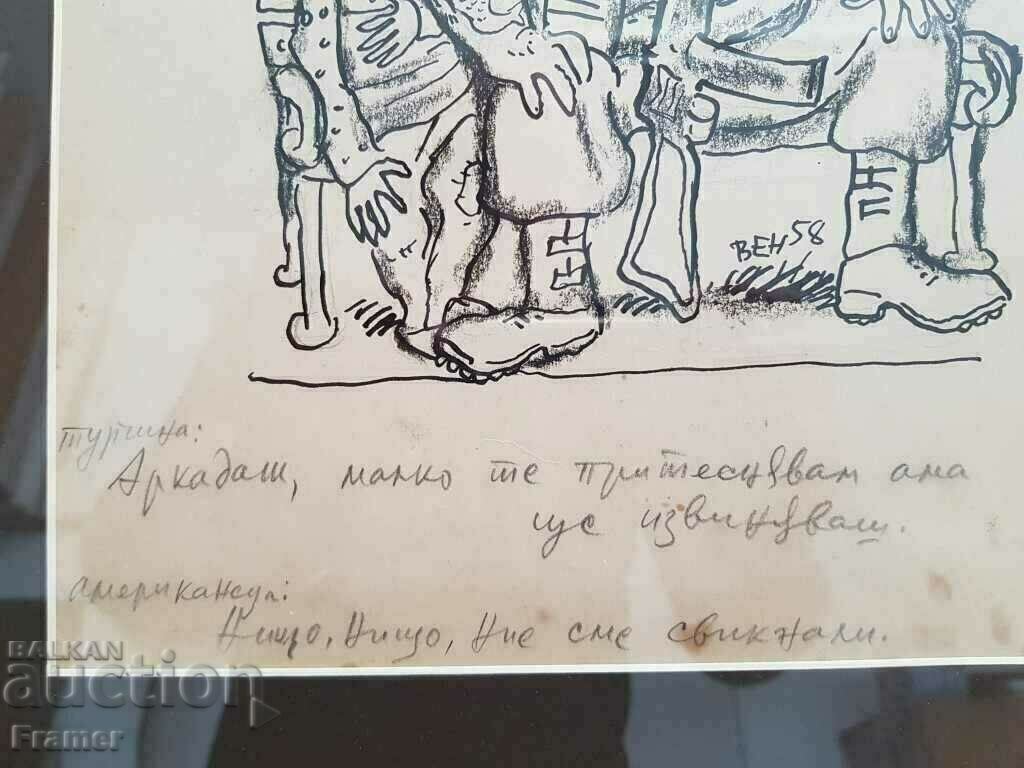 ВЕН 58
турчина:
Аркадаш, малко те притеснявам ама
ще извиняваш.
американеца:
Нищо, Нищо, Ние сме свикнали.
BALKAN
auction
Framer